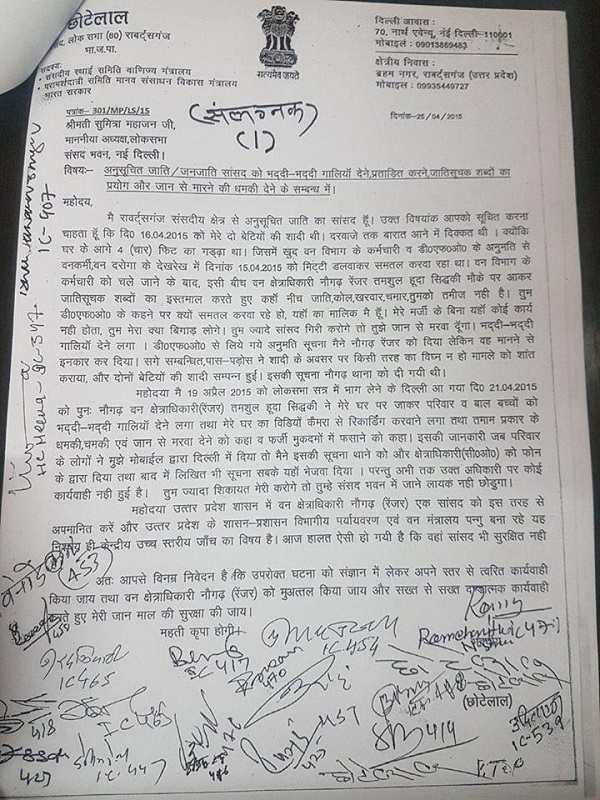 छोटेलाल
सद, लोक सभा (80) राबर्ट्सगंज
भा.ज.पा.
सदस्य:
• संसदीय स्थाई समिति वाणिज्य मंत्रालय
• परामर्शदात्री समिति मानव संसाधन विकास मंत्रालय
भारत सरकार
सत्यमेव जयते
दिल्ली आवास :
70, नार्थ एवेन्यू, नई दिल्ली-110001
मोबाइल : 09013869483
क्षेत्रीय निवास :
ब्रहम नगर, राबर्ट्सगंज (उत्तर प्रदेश)
मोबाइल : 09935449727
पत्रांक- 301/MP/LS/15
(संलग्नक)
(1)
दिनांक-25/04/2015
श्रीमती सुमित्रा महाजन जी,
माननीया अध्यक्ष,लोकसभा
संसद भवन, नई दिल्ली।
विषयः- अनुसूचित जाति/जनजाति सांसद को भददी-भददी गालियाँ देने,प्रताड़ित करने,जातिसूचक शब्दों का
प्रयोग और जान से मारने की धमकी देने के सम्बन्ध में।
महोदय,
मै रावर्ट्सगंज संसदीय क्षेत्र से अनुसूचित जाति का सांसद हूँ। उक्त विषयांक आपको सूचित करना
चाहता हूँ कि दि0 16.04.2015 को मेरे दो बेटियों की शादी थी। दरवाजे तक बारात आने में दिक्कत थी । क्योंकि
घर के आगे 4 (चार) फिट का गड्ढा था। जिसमें खुद वन विभाग के कर्मचारी व डी०एफ०ओ० के अनुमति से
वनकर्मी,वन दरोगा के देखरेख में दिनांक 15.04.2015 को मिट्टी डलवाकर समतल करवा रहा था। वन विभाग के
कर्मचारी को चले जाने के बाद, इसी बीच वन क्षेत्राधिकारी नौगढ़ रेंजर तमशुल हूदा सिद्धकी मौके पर आकर
जातिसूचक शब्दों का इस्तमाल करते हुए कहाँ नीच जाति,कोल,खरवार,चमार,तुमको तमीज नही है। तुम
डी०एफ०ओ० के कहने पर क्यों समतल करवा रहे हो, यहाँ का मालिक मै हूँ। मेरे मर्जी के बिना यहाँ कोई कार्य
नही होता, तुम मेरा क्या बिगाड़ लोगे। तुम ज्यादे सांसद गिरी करोगे तो तुझे जान से मरवा दूँगा। भददी-भददी
गालियाँ देने लगा । डी०एफ० से लिये गये अनुमति सूचना मैने नौगढ़ रेंजर को दिया लेकिन वह मानने से
इनकार कर दिया। सगे सम्बन्धित,पास-पड़ोस ने शादी के अवसर पर किसी तरह का विघ्न न हो मामले को शांत
कराया, और दोनों बेटियों की शादी सम्पन्न हुई। इसकी सूचना नौगढ़ थाना को दी गयी थी।
महोदया मै 19 अप्रैल 2015 को लोकसभा सत्र में भाग लेने के दिल्ली आ गया दि0 21.04.2015
को पुनः नौगढ़ वन क्षेत्राधिकारी(रेंजर) तमशुल हूदा सिद्धकी ने मेरे घर पर जाकर परिवार व बाल बच्चों को
भददी-भददी गालियाँ देने लगा तथा मेरे घर का विडियों कैमरा से रिकार्डिंग करवाने लगा तथा तमाम प्रकार के
धमकी,चमकी एवं जान से मरवा देने को कहा व फर्जी मुकदमों में फसाने को कहा। इसकी जानकारी जब परिवार
के लोगों ने मुझे मोबाईल द्वारा दिल्ली में दिया तो मैने इसकी सूचना थाने को और क्षेत्राधिकारी(सी०ओ०) को फोन
के द्वारा दिया तथा बाद में लिखित भी सूचना सबके यहाँ भेजवा दिया । परन्तु अभी तक उक्त अधिकारी पर कोई
कार्यवाही नही हुई है। तुम ज्यादा शिकायत मेरी करोगे तो तुम्हे संसद भवन में जाने लायक नही छोड़ुगा।
महोदया उत्तर प्रदेश शासन में वन क्षेत्राधिकारी नौगढ़ (रेंजर) एक सांसद को इस तरह से
अपमानित करें और उत्तर प्रदेश के शासन-प्रशासन विभागीय पर्यायवरण एवं वन मंत्रालय पन्गु बना रहे यह
ही केन्द्रीय उच्च स्तरीय जाँच का विषय है। आज हालत ऐसी हो गयी है कि वहां सांसद भी सुरक्षित नही
अतः आपसे विनम्र निवेदन है कि उपरोक्त घटना को संज्ञान में लेकर अपने स्तर से त्वरित कार्यवाही
किया जाय तथा वन क्षेत्राधिकारी नौगढ़ (रेंजर) को मुअत्तल किया जाय और सख्त से सख्त कार्यवाही
हुए मेरी जान माल की सुरक्षा की जाय।
महती कृपा होगी।
(छोटेलाल)
IC-407
IC-347
453
IC 454
IC 417
IC 465
470
IC 488
414
IC-539
457
427
418
IC-447
427